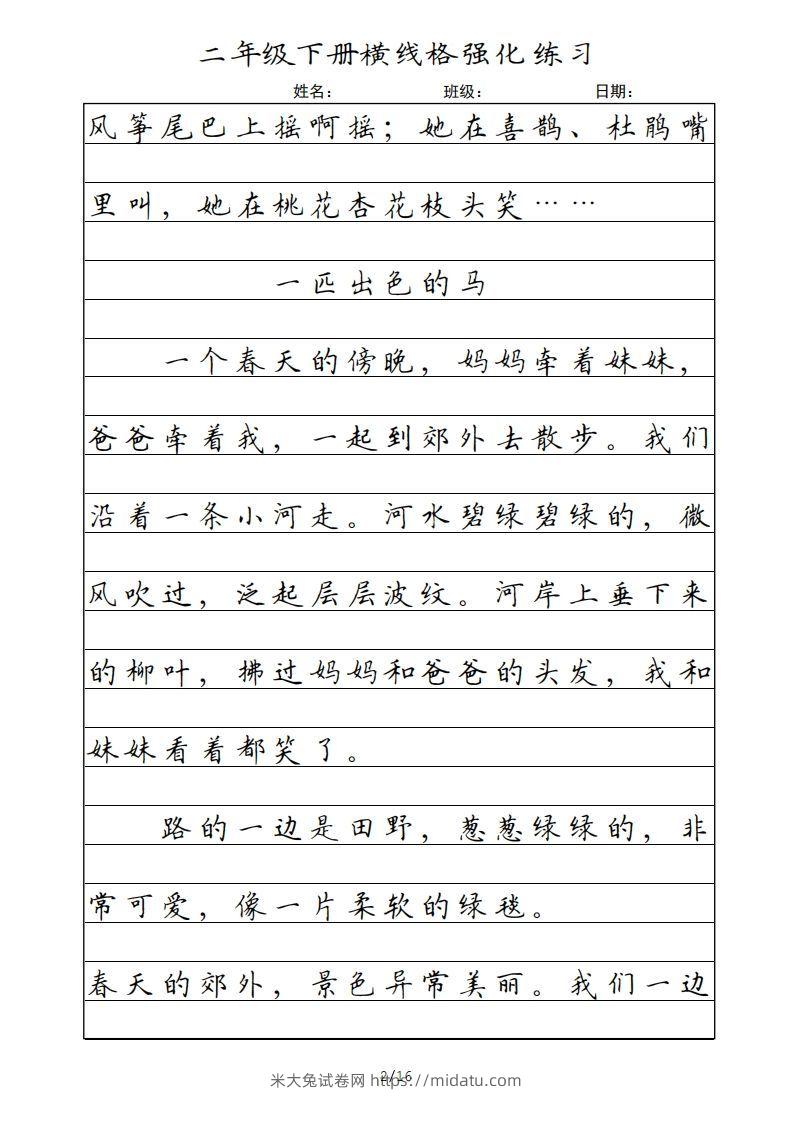 二年级下册横线格强化练习
姓名： 班级： 日期：
风筝尾巴上摇啊摇；她在喜鹊、杜鹃嘴
里叫，她在桃花杏花枝头笑……
一匹出色的马
一个春天的傍晚，妈妈牵着妹妹，
爸爸牵着我，一起到郊外去散步。我们
沿着一条小河走。河水碧绿碧绿的，微
风吹过，泛起层层波纹。河岸上垂下来
的柳叶，拂过妈妈和爸爸的头发，我和
妹妹看着都笑了。
路的一边是田野，葱葱绿绿的，非
常可爱，像一片柔软的绿毯。
春天的郊外，景色异常美丽。我们一边
2/16
米大兔试卷网 https://midatu.com